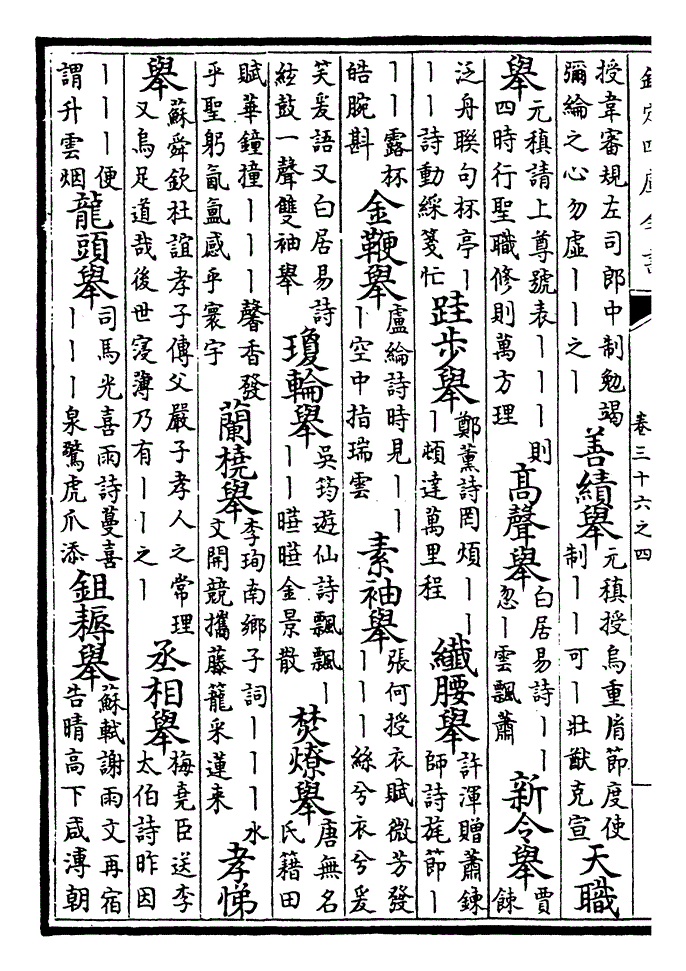 欽定四庫全書 卷三十六之四
授韋審規左司郎中制勉竭彌綸之心勿虛丨丨之丨 善績舉 元稹授烏重脣節度使制丨丨可丨壯猷克宣 天職
舉 元稹請上尊號表丨丨丨則四時行聖職修則萬方理 高聲舉 白居易詩丨丨忽丨雲飄蕭 新令舉 賈餗
泛舟聯句杯亭丨丨丨詩動綵箋忙 跬步舉 鄭薰詩罔煩丨丨丨頻達萬里程 纖腰舉 許渾贈蕭鍊師詩旄節丨
丨丨露杯皓腕斟 金鞭舉 盧綸詩時見丨丨丨空中指瑞雲 素袖舉 張何授衣賦微芳發丨丨丨絲兮衣兮爰
笑爰語又白居易詩絃鼓一聲雙袖舉 瓊輪舉 吳筠遊仙詩飄飄丨丨丨曀曀金景散 焚燎舉 唐無名氏籍田
賦華鐘撞丨丨丨馨香發乎聖躬氤氳感乎寰宇 蘭橈舉 李珣南鄉子詞丨丨丨水文開競攜藤籠采蓮来 孝悌
舉 蘇舜欽杜誼孝子傳父嚴子孝人之常理又烏足道哉後世寖薄乃有丨丨之丨 丞相舉 梅堯臣送李太伯詩昨因
丨丨丨便謂升雲烟 龍頭舉 司馬光喜雨詩蔓喜丨丨丨泉驚虎爪添 鉏耨舉 蘇軾謝雨文再宿告晴高下咸溥朝